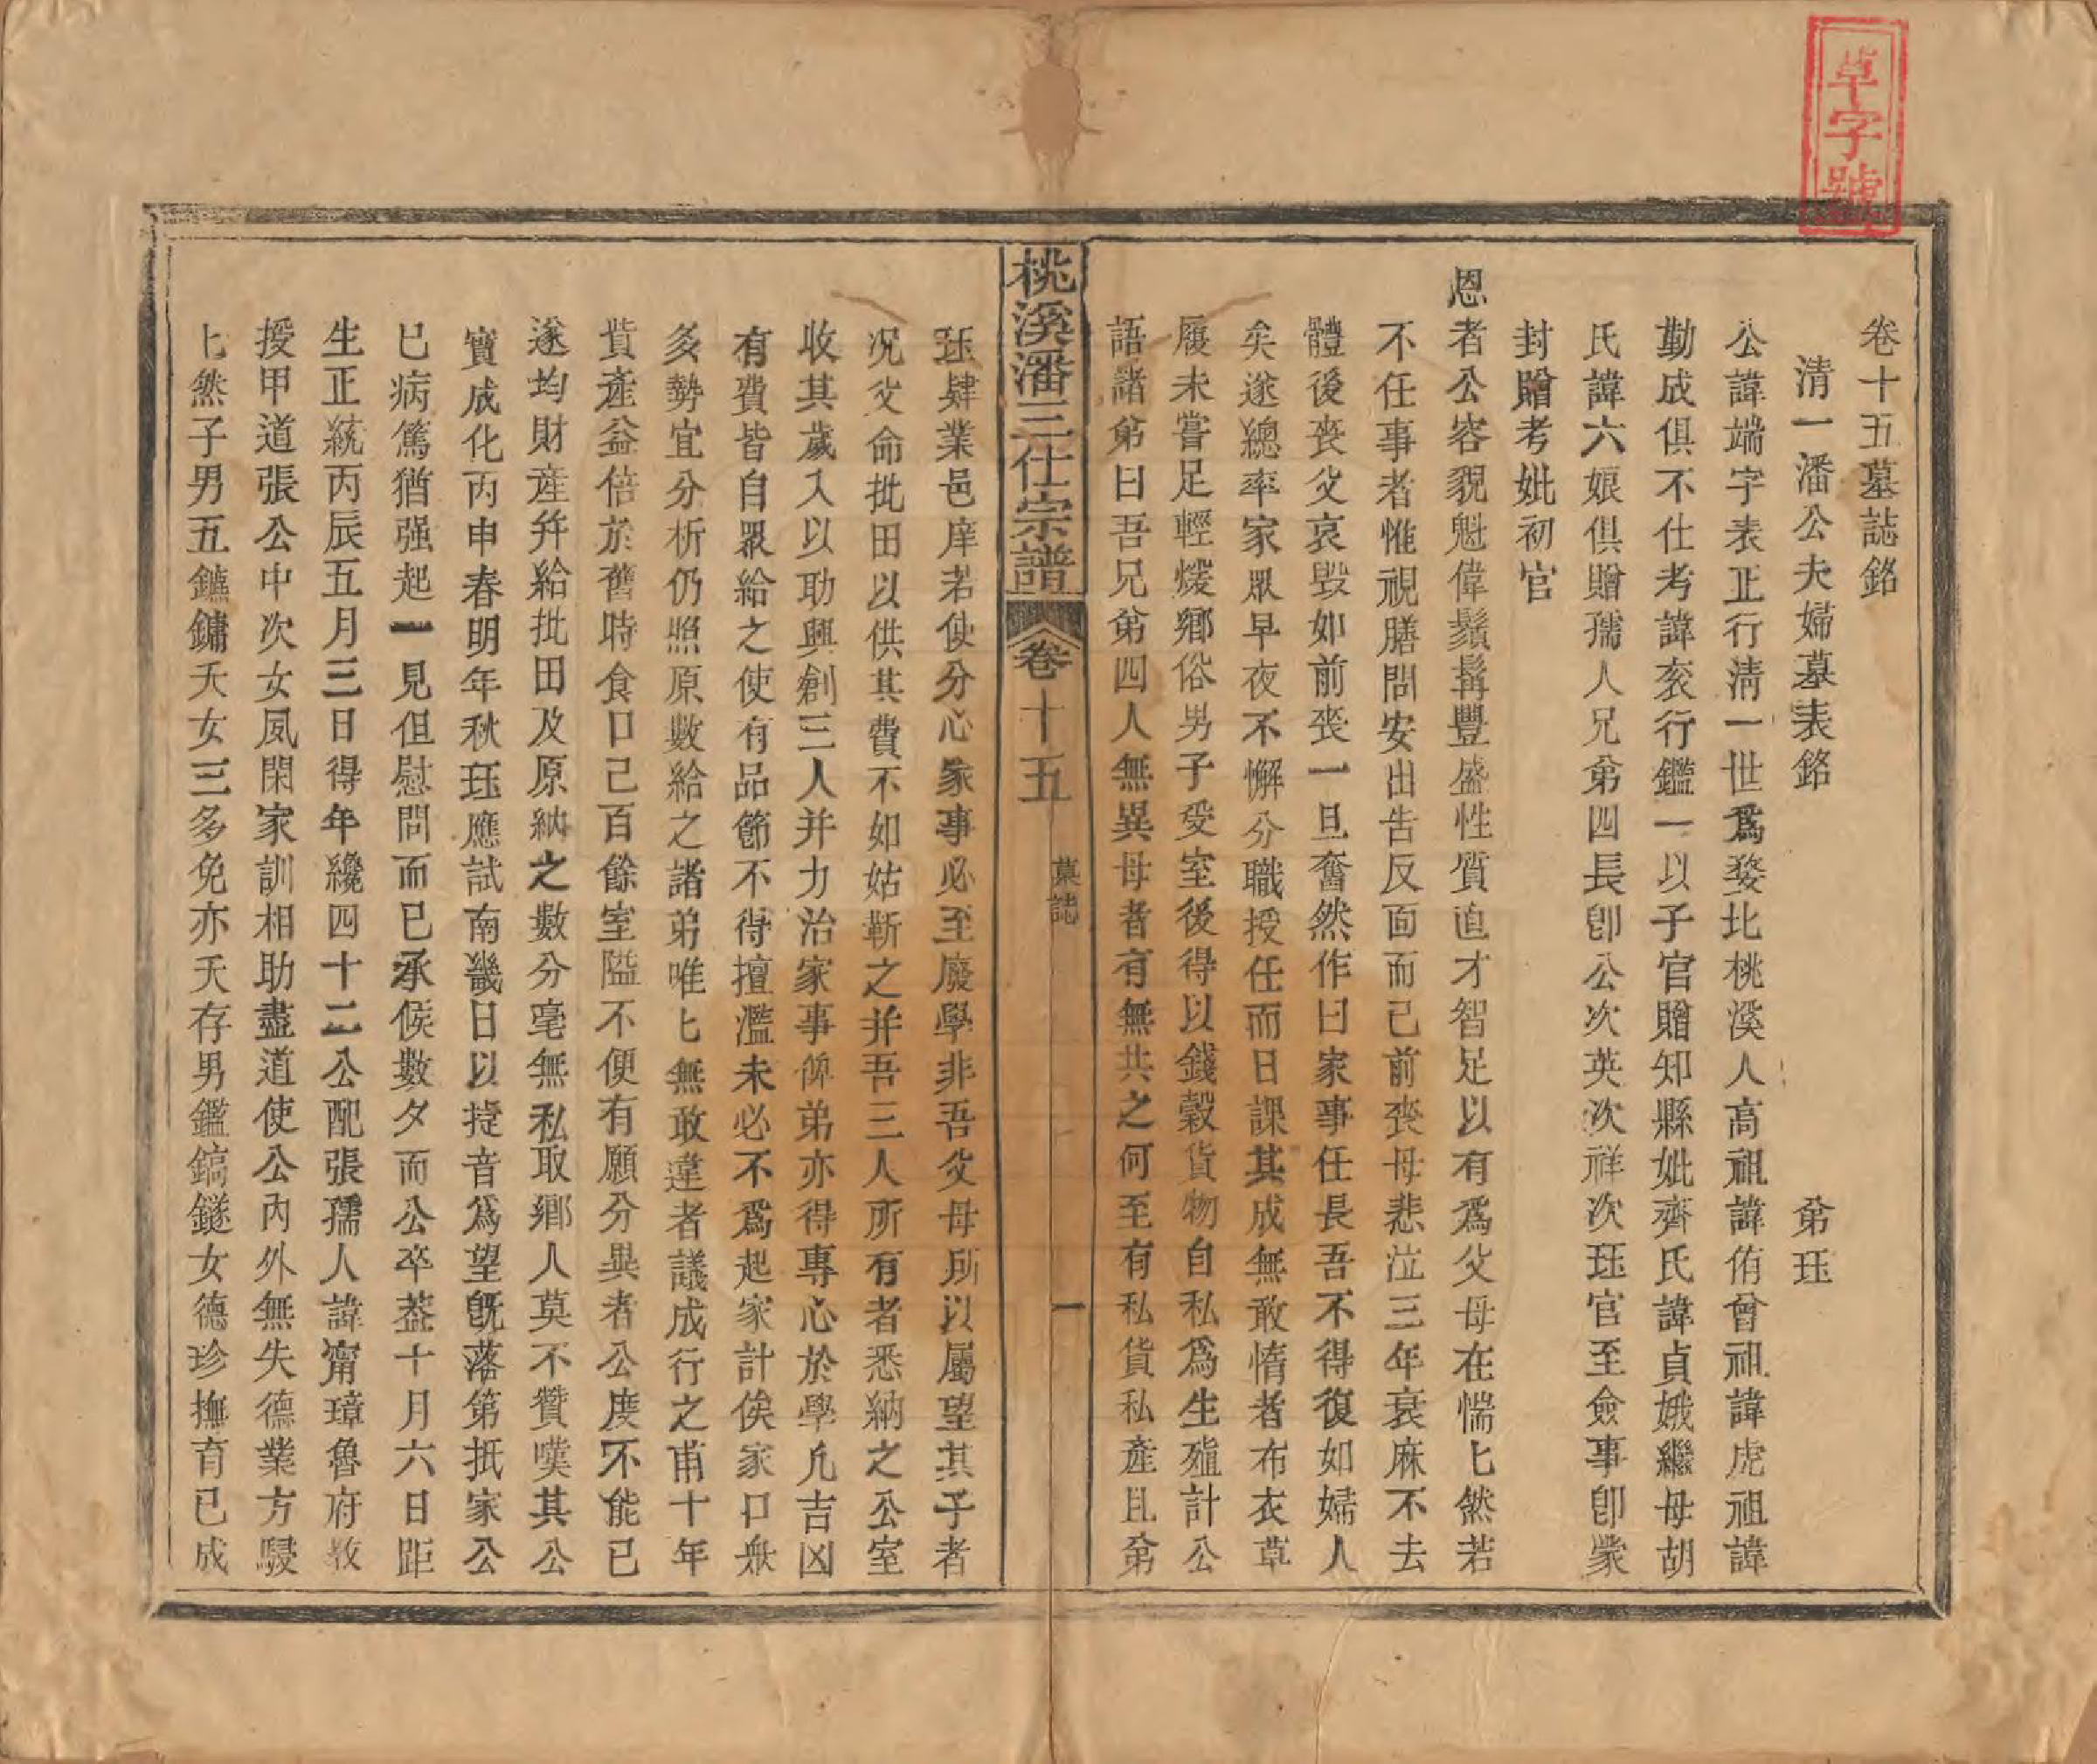 草字號
卷十五墓誌銘
清一潘公夫婦墓表銘　弟珏
公諱端字表正行清一世爲婺北桃溪人高祖諱侑曾祖諱虎祖諱
勤成俱不仕考諱衮行鑑一以子官贈知縣妣齊氏諱貞娥繼母胡
氏諱六娘俱贈孺人兄弟四長卽公次英次祥次珏官至僉事卽蒙
封贈考妣初官
恩者公容貌魁偉鬚髯豐盛性質直才智足以有爲父母在惴匕然若
不任事者惟視膳問安出告反面而已前喪母悲泣三年衰麻不去
體後喪父哀毀如前喪一旦奮然作曰家事任長吾不得復如婦人
矣遂總率家眾早夜不懈分職授任而日課其成無敢惰者布衣草
履未嘗足輕煖鄉俗男子受室後得以錢穀貨物自私爲生殖計公
語諸弟曰吾兄弟四人無異母者有無共之何至有私貨私產且弟
桃溪潘三仕宗譜
卷十五
墓誌
一
珏肄業邑庠若使分心家事必至廢學非吾父母所以屬望其子者
况父命批田以供其費不如姑靳之并吾三人所有者悉納之公室
收其歲入以助興創三人并力治家事俾弟亦得專心於學凡吉凶
有費皆自眾給之使有品節不得擅濫未必不爲起家計俟家口衆
多勢宜分析仍照原數給之諸弟唯匕無敢違者議成行之甫十年
貲產益倍於舊時食口已百餘室隘不便有願分異者公度不能已
遂均財產并給批田及原納之數分毫無私取鄉人莫不贊嘆其公
實成化丙申春明年秋珏應試南畿日以捷音爲望旣落第抵家公
已病篤猶强起一見但慰問而已承候數夕而公卒葢十月六日距
生正統丙辰五月三日得年纔四十二公配張孺人諱甯璋魯府教
授甲道張公中次女夙閑家訓相助盡道使公內外無失德業方駸
匕然子男五鑣鏞夭女三多免亦夭存男鑑鎬鐩女德珍撫育已成